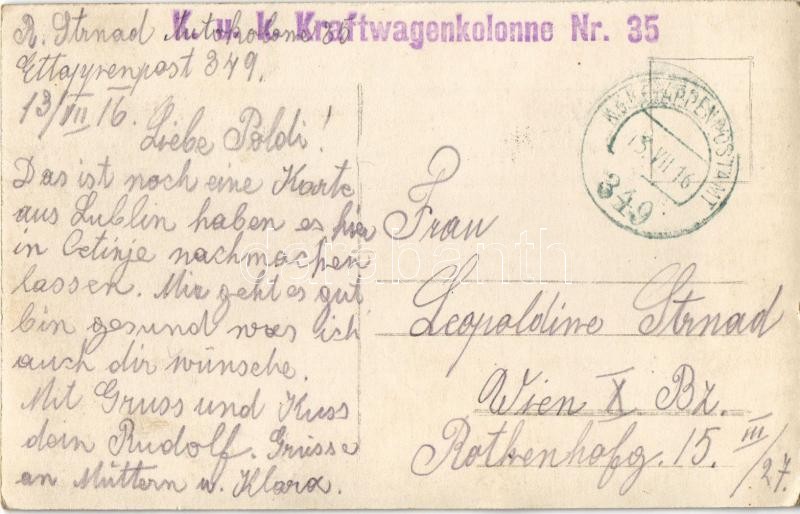 K. u. k. Kraftwagenkolonne Nr. 35
R. Strnad Autokolone 35
Ettappenpost 349.
13/VII 16.
Liebe Poldi!
Das ist noch eine Karte
aus Lublin haben es hier
in Cetinje nachmachen
lassen. Mir geht es gut
bin gesund was ich
auch dir wünsche.
Mit Gruss und Kuss
dein Rudolf. Grüsse
an Müttern u. Klara.
K.u.K. ETAPPENPOSTAMT
15.VII.16
349
Frau
Leopoldine Strnad
Wien X Bz.
Rothenhofg. 15. III/27.
darabanth